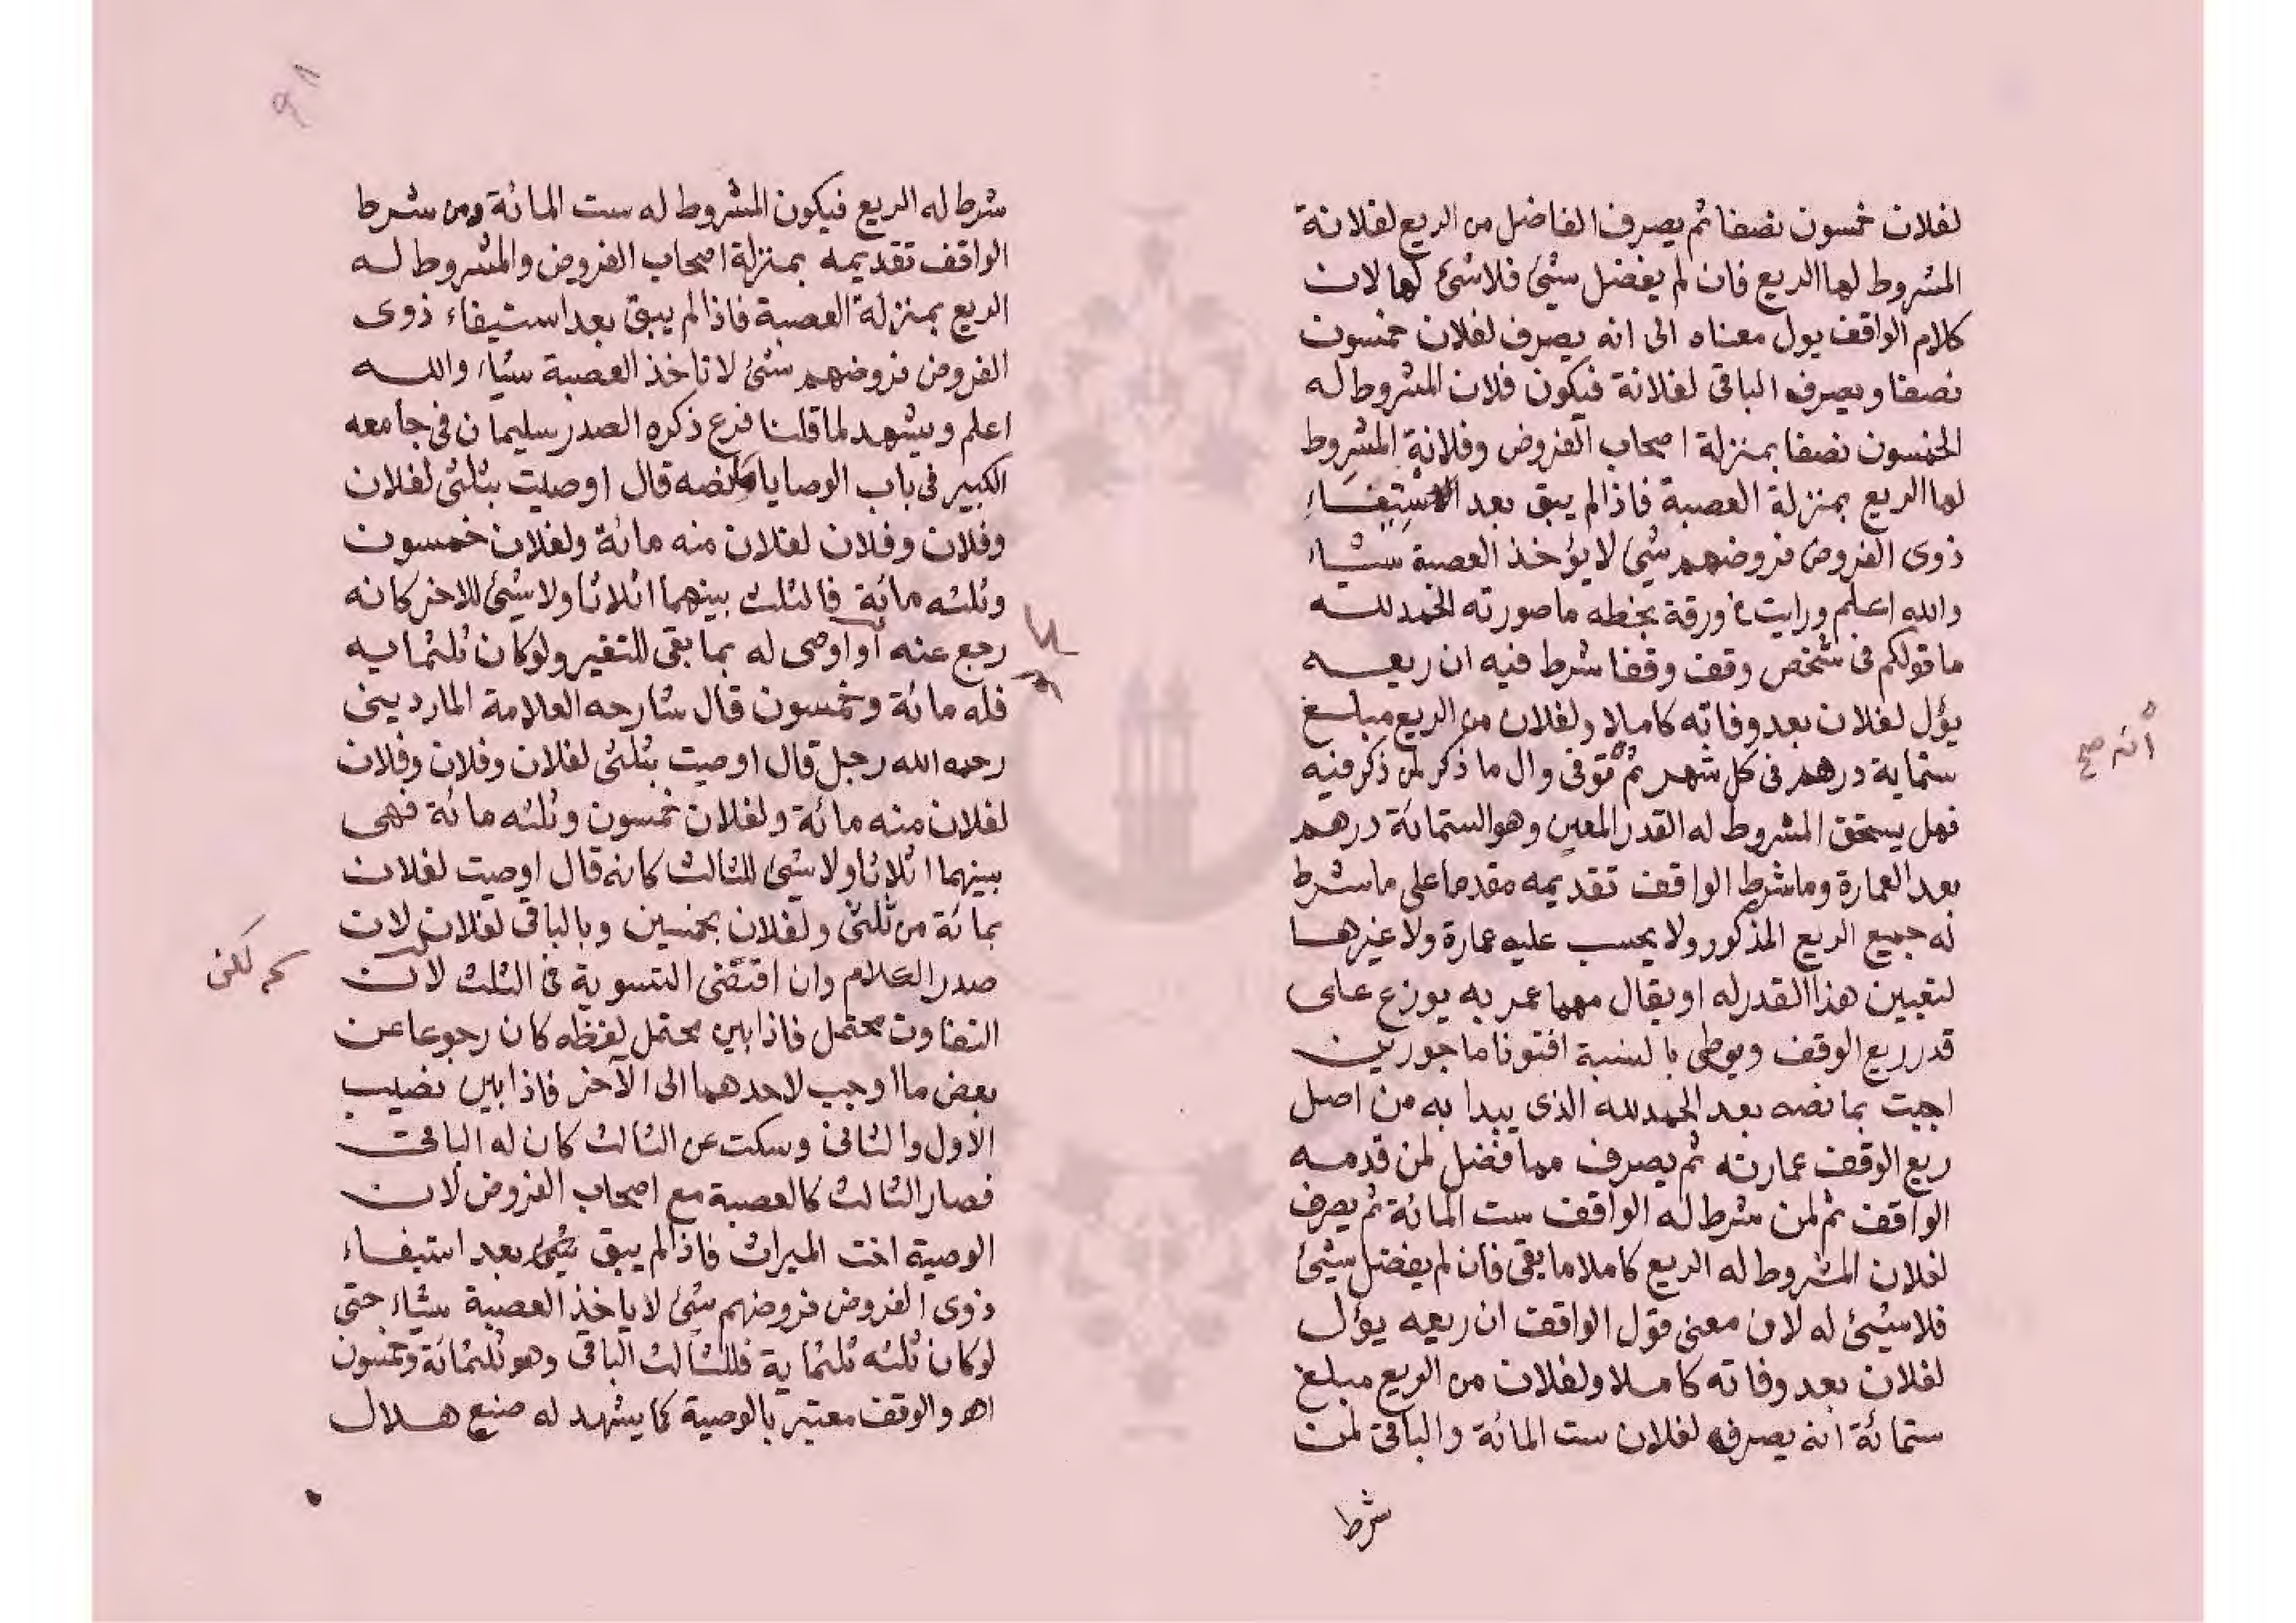 لفلان خمسون نصفا ثم يصرف الفاضل من الريع لفلانة
المشروط لها الريع فان لم يفضل شيئ فلاشئ لها لان
كلام الواقف يول معناه الى انه يصرف لفلان خمسون
نصفا ويصرف الباقى لفلانة فيكون فلان المشروط له
الخمسون نصفا بمنزلة اصحاب الفروض وفلانة المشروط
لها الريع بمنزلة العصبة فاذا لم يبق بعد استيفاء
ذوى الفروض فروضهم شئ لا يؤخذ العصبة شياء
والله اعلم ورايت فى ورقة بخطه ما صورته الحمد لله
ما قولكم فى شخص وقف وقفا شرط فيه ان ريعه
يؤل لفلان بعد وفاته كاملا ولفلان من الريع مبلغ
ستماية درهم فى كل شهر ثم توفى وال ما ذكر لمن ذكر فيه
فهل يستحق المشروط له القدر المعين وهو الستمائة درهم
بعد العمارة وما شرط الواقف تقديمه مقدما على ما شرط
له جميع الريع المذكور ولا يحسب عليه عمارة ولا غيرها
لتعيين هذا القدر له او يقال مهما عمر به يوزع على
قدر ريع الوقف ويوطى بالنسبة افتونا ماجورين
اجبت بما نصه بعد الحمد لله الذى يبدا به من اصل
ريع الوقف عمارته ثم يصرف مما فضل لمن قدمه
الواقف ثم لمن شرط له الواقف ست المائة ثم يصرف
لفلان المشروط له الريع كاملا ما بقى فان لم يفضل شيئ
فلا شيئ له لان معنى قول الواقف ان ريعه يؤل
لفلان بعد وفاته كاملا ولفلان من الريع مبلغ
ستمائة انه يصرف لفلان ست المائة والباقى لمن
شرط
شرط له الريع فيكون المشروط له ست المائة ومن شرط
الواقف تقديمه بمنزلة اصحاب الفروض والمشروط له
الريع بمنزلة العصبة فاذا لم يبق بعد استيفاء ذوى
الفروض فروضهم شئ لا تاخذ العصبة شياء والله
اعلم ويشهد لما قلنا فرع ذكره الصدر سليمان فى جامعه
الكبير فى باب الوصايا نصه قال اوصيت بثلثى لفلان
وفلان وفلان لفلان منه مائة ولفلان خمسون
وثلثه مائة فالثلث بينهما اثلاثا ولا شيئ للاخر كانه
رجع عنه او اوصى له بما بقى للتغير ولو كان ثلثمايه
فله مائة وخمسون قال شارحه العلامة الماردينى
رحمه الله رجل قال اوصيت بثلثى لفلان وفلان وفلان
لفلان منه مائة ولفلان خمسون وثلثه مائة فهى
بينهما اثلاثا ولا شيئ للثالث كانه قال اوصيت لفلان
بمائة من ثلثى ولفلان بخمسين وبالباقى لفلان لان
صدر الكلام وان اقتضى التسوية فى الثلث لان
التفاوت محتمل فاذا بين محتمل لفظه كان رجوعا عن
بعض ما اوجب لاحدهما الى الآخر فاذا بين نصيب
الاول والثانى وسكت عن الثالث كان له الباقى
فصار الثالث كالعصبة مع اصحاب الفروض لان
الوصية اخت الميراث فاذا لم يبق شئ بعد استيفاء
ذوى الفروض فروضهم شئ لا ياخذ العصبة شياء حتى
لو كان ثلثه ثلثماية فللثالث الباقى وهو ثلثمائة وخمسون
اه والوقف معتبر بالوصية كما يشهد له صنع هلال
لكن
٩٨